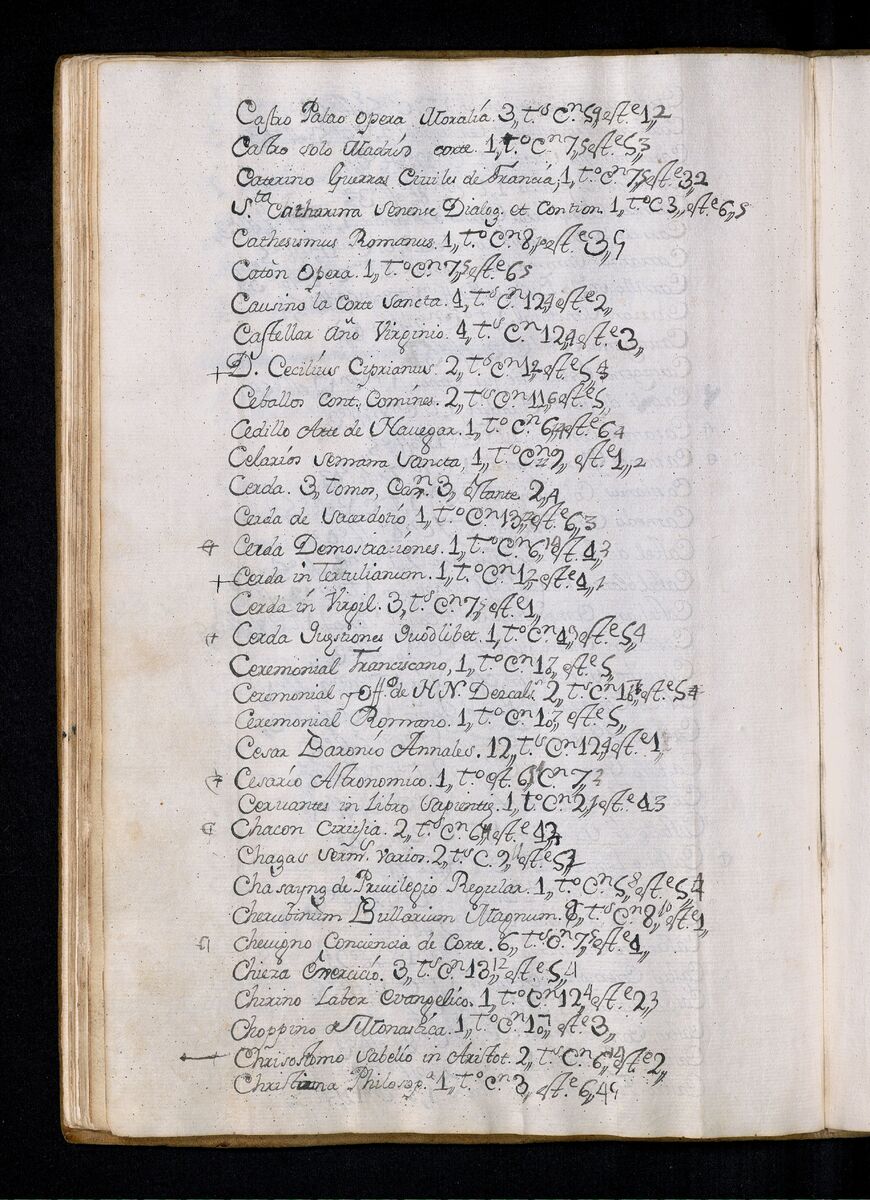 Castro Palao Opera Moralia. 3,, t.os C.n 59, est.e 1,,2
Castro solo Madrid corte. 1,, t.o C.n 7,5 est.e 5,,3
Caterino Guerras Civiles de Francia, 1,, t.o C.n 7, est.e 3,,2
S.ta Catharina Senense Dialog. et Contion. 1,, t.o C. 3,, est.e 6,,5
Cathesismus Romanus. 1,, t.o C.n 8, est.e 3,,
Catòn Opera. 1,, t.o C.n 7,5 est.e 6 5
Causino la Corte Sancta. 4,, t.s C.n 12,4 est.e 2,,
Castellar Año Virginio. 4,, t.s C.n 12,4 est.e 3,,
D. Cecilius Ciprianus. 2,, t.s C.n 12 est.e 5,,
Ceballos Cont. Comines. 2,, t.os C.n 11,6 est.e 5,,
Cedillo Arte de Navegar. 1,, t.o C.n 6, est.e 6 4
Celarios Semana Sancta, 1,, t.o C.n 9,, est.e 1,,2
Cerda. 3,, tomos, Can. 3,, estante 2,,4
Cerda de Sacerdotio, 1,, t.o C.n 13, est.e 6,,3
Cerda Demostraciones. 1,, t.o C.n 6, est. 4,,
Cerda in Tertulianum. 1,, t.o C.n 12 est.e 4,,
Cerda in Virgil. 3,, t.s C.n 7, est.e 1,,
Cerda Qugstiones Quodlibet. 1,, t.o C.n est.e 5,,4
Ceremonial Franciscano, 1,, t.o C.n est.e 5,,
Ceremonial y Off.o de N. N. Descalz. 2,, t.s C.n est.e 5
Ceremonial Romano. 1,, t.o C.n est.e 5,,
Cesar Baronio Annales. 12,, t.s C.n 12,4 est.e 1,
Cesario Astronomico. 1,, t.o est. C.n 7,,
Cervantes in Libro Sapientie. 1,, t.o C.n 2, est.e 4 3
Chacon Cirujia. 2,, t.s C.n 6, est.e
Chagas Serm.s varios. 2,, t.s C. 9, est.e 5,
Chasayng de Privilegio Regular. 1,, t.o C.n 5,8 est.e 5,,4
Cherubinum Bullarium Magnum. 8,, t.s C.n 8,10 est.e 1,,
Chevigno Conciencia de Corte. 6,, t.s C.n 7,5 est.e 4,,
Chiera Comercio. 3,, t.s C.n 13,12 est.e 5,,4
Chirino Labor evangelico. 1,, t.o C.n 12,4 est.e 2,,3
Choppino de Monastica. 1,, t.o C.n 10, est.e 3,,
Chrisostomo Sabelio in Aristot. 2,, t.s C.n 6, est.e 2,,
Christiana Philosop.a 1,, t.o C.n 3,, est.e 6,,4